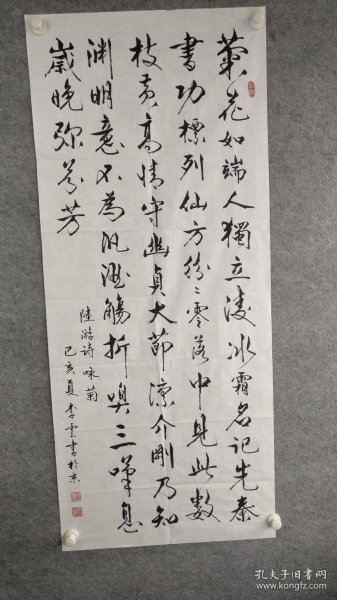 菊花如端人獨立凌冰霜名記先秦
書功標列仙方紛〻零落中見此數
枝黄高情守幽貞大節凛介剛乃知
渊明意不為汎酒觴折嗅三嘆息
歲晚弥芬芳
陸游詩咏菊
己亥夏李雲書於京
孔夫子旧书网